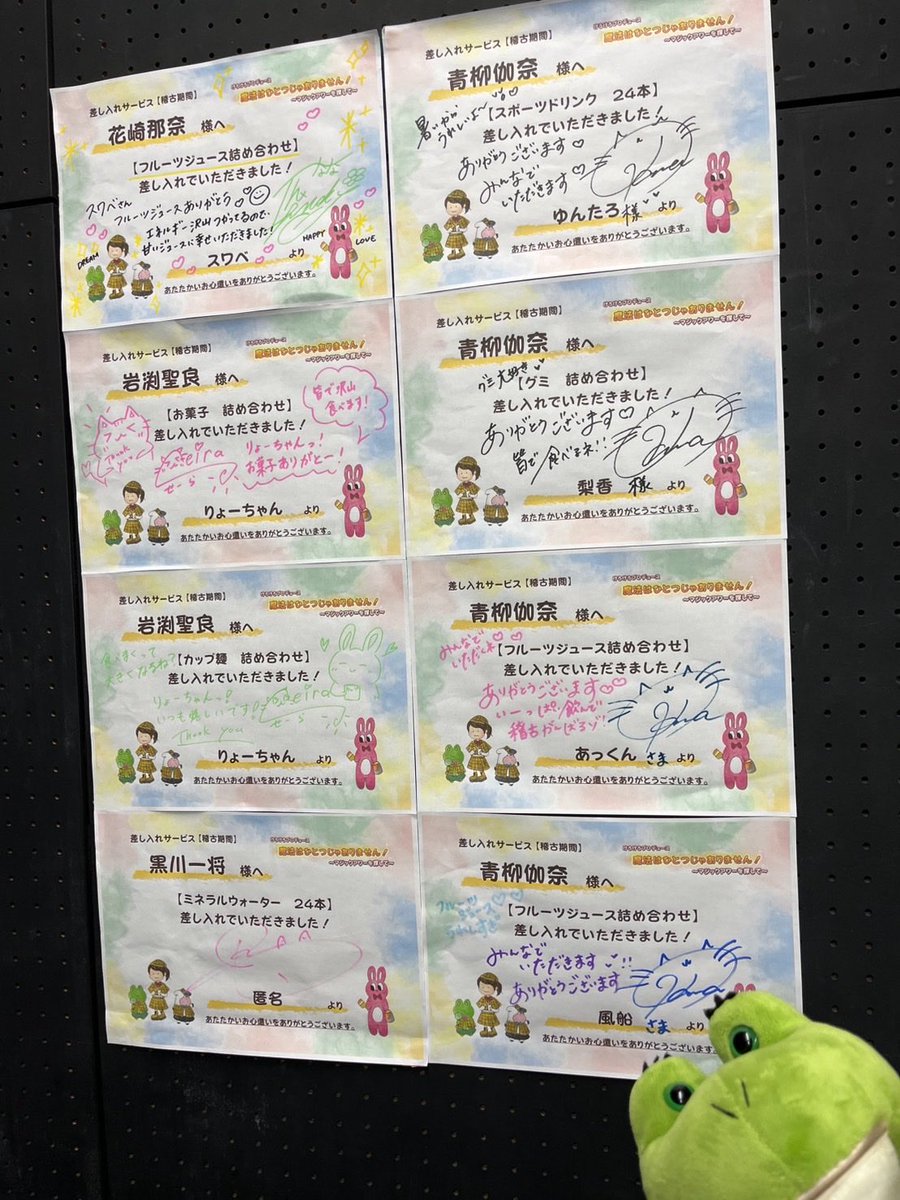 差し入れサービス【稽古期間】
けちけちプロデュース
魔法はひとつじゃありません!
~マジックアワーを探して~
花崎那奈 様へ
【フルーツジュース詰め合わせ】
差し入れでいただきました!
スワベさん
フルーツジュースありがとう
エネルギー沢山つかってるので、
甘いジュースに幸せいただきました!
DREAM
HAPPY
LOVE
スワベ より
あたたかいお心遣いをありがとうございます。
差し入れサービス【稽古期間】
けちけちプロデュース
魔法はひとつじゃありません!
~マジックアワーを探して~
青柳伽奈 様へ
暑いから
うれしいよ~
【スポーツドリンク 24本】
差し入れでいただきました!
ありがとうございます♡
みんなで
いただきます
ゆんたろ様 より
あたたかいお心遣いをありがとうございます。
差し入れサービス【稽古期間】
けちけちプロデュース
魔法はひとつじゃありません!
~マジックアワーを探して~
岩渕聖良 様へ
【お菓子 詰め合わせ】
差し入れでいただきました!
皆で沢山
食べます!
Thank
you
りょーちゃんっ!
お菓子ありがとー!
せーら
りょーちゃん より
あたたかいお心遣いをありがとうございます。
差し入れサービス【稽古期間】
けちけちプロデュース
魔法はひとつじゃありません!
~マジックアワーを探して~
青柳伽奈 様へ
グミ大好き
【グミ 詰め合わせ】
差し入れでいただきました!
ありがとうございます♡
皆で食べるネ!!
梨香 様 より
あたたかいお心遣いをありがとうございます。
差し入れサービス【稽古期間】
けちけちプロデュース
魔法はひとつじゃありません!
~マジックアワーを探して~
岩渕聖良 様へ
【カップ麺 詰め合わせ】
差し入れでいただきました!
りょーちゃんっ!
いつも嬉しいです!
Thank you
せーら
りょーちゃん より
あたたかいお心遣いをありがとうございます。
差し入れサービス【稽古期間】
けちけちプロデュース
魔法はひとつじゃありません!
~マジックアワーを探して~
青柳伽奈 様へ
みんなで
いただくね
【フルーツジュース詰め合わせ】
差し入れでいただきました!
ありがとうございます♡♡
いーっぱい飲んで
稽古がんばろゾ!
あっくん さま より
あたたかいお心遣いをありがとうございます。
差し入れサービス【稽古期間】
けちけちプロデュース
魔法はひとつじゃありません!
~マジックアワーを探して~
黒川一将 様へ
【ミネラルウォーター 24本】
差し入れでいただきました!
匿名 より
あたたかいお心遣いをありがとうございます。
差し入れサービス【稽古期間】
けちけちプロデュース
魔法はひとつじゃありません!
~マジックアワーを探して~
青柳伽奈 様へ
フルーツ
ジュース
【フルーツジュース詰め合わせ】
差し入れでいただきました!
みんなで
いただきます !!
ありがとうございます
風船 さま より
あたたかいお心遣いをありがとうございます。